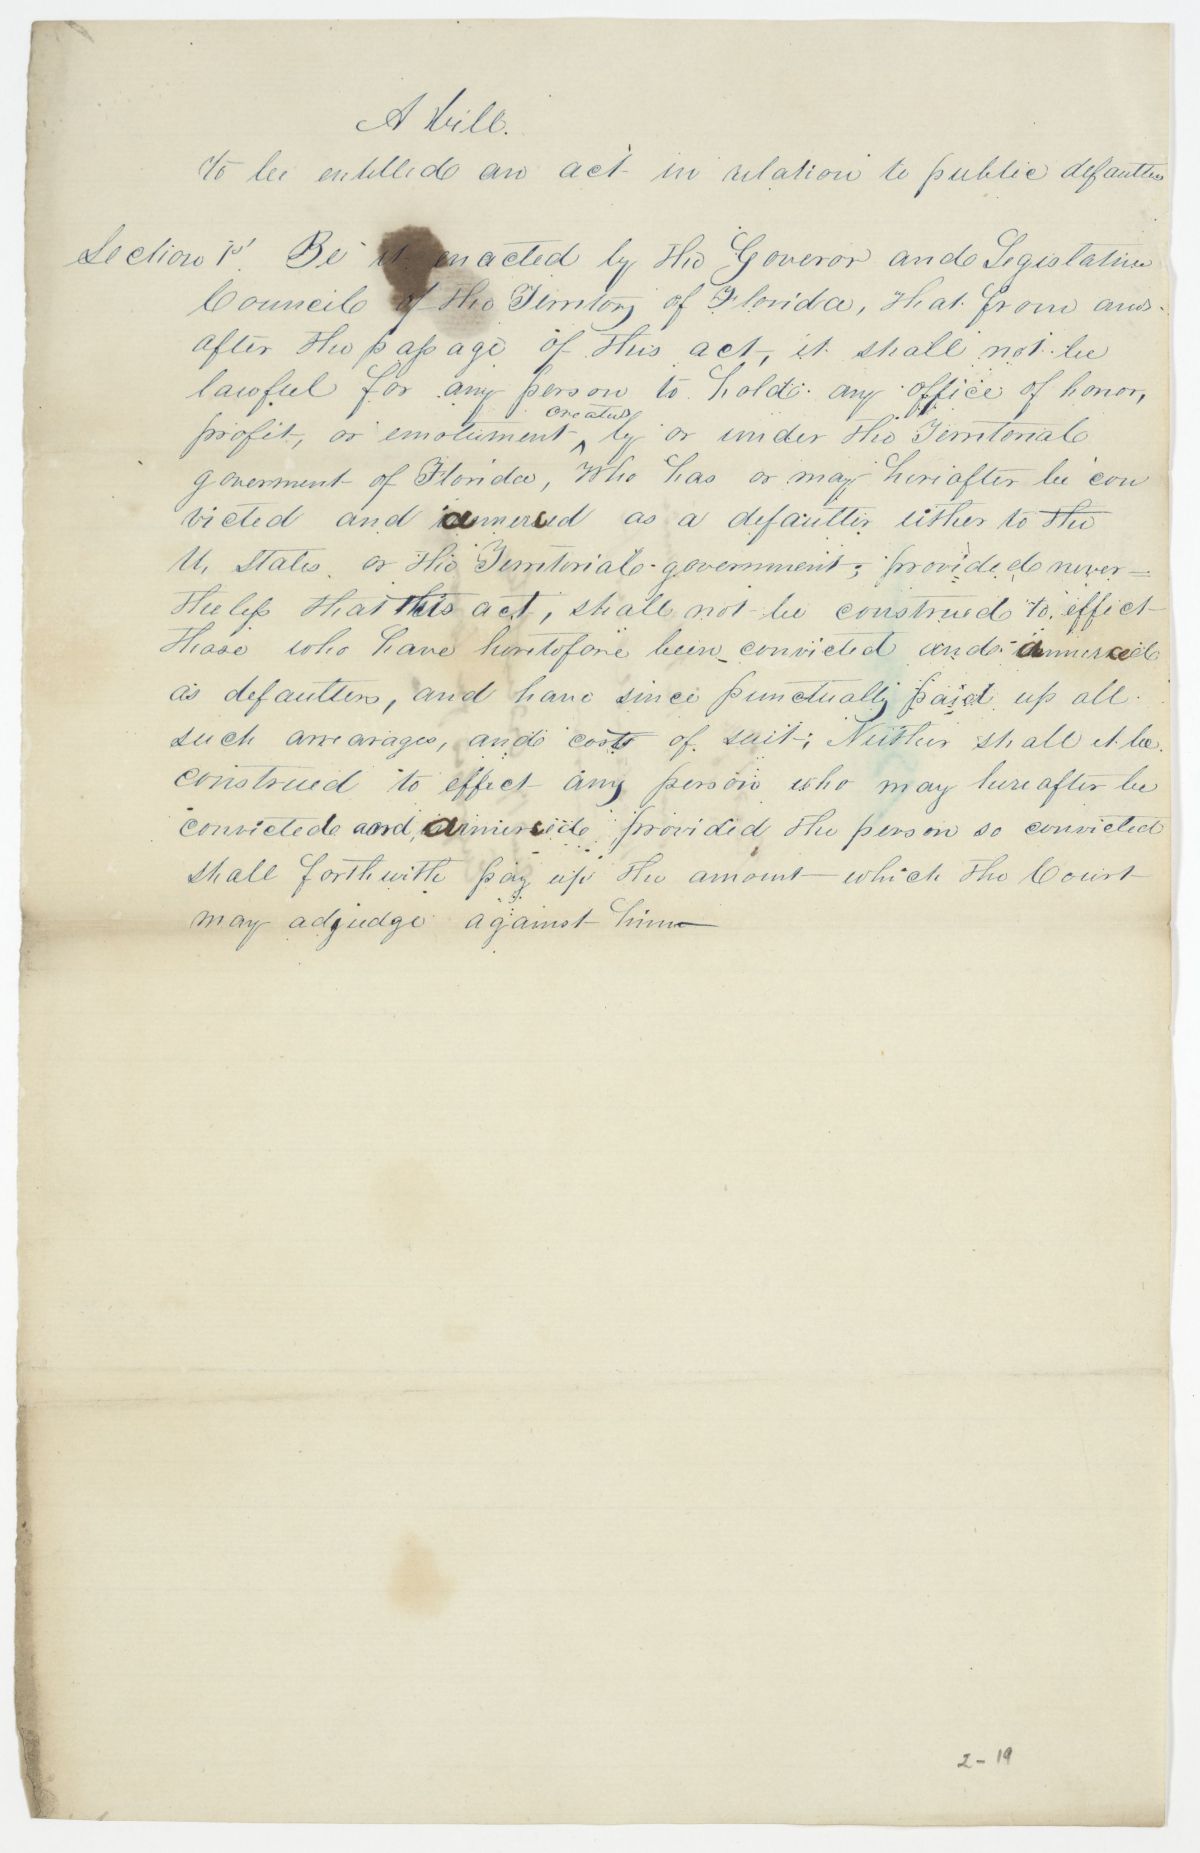 A bill.
to be entitled an act in relation to public defaulters
Section 1st. Be it enacted by the Goveror and Legislative
Council of the Territory of Florida, that from and
after the passage of this act, it shall not be
lawful for any person to hold any office of honor,
created
profit, or emolument ^ by or under the Territorial
goverment of Florida, who has or may hereafter be con
victed and amerced as a defaulter either to the
U, States or the Territorial government; provided never-
theless that this act, shall not be construed to effect
those who have heretofore been convicted and amerced
as defaulters, and have since punctually paid up all
such arrearages, and costs of suit; Neither shall it be
construed to effect any person who may hereafter be
convicted and amerced, provided the person so convicted
shall forthwith pay up the amount which the Court
may adjudge against him
2-19